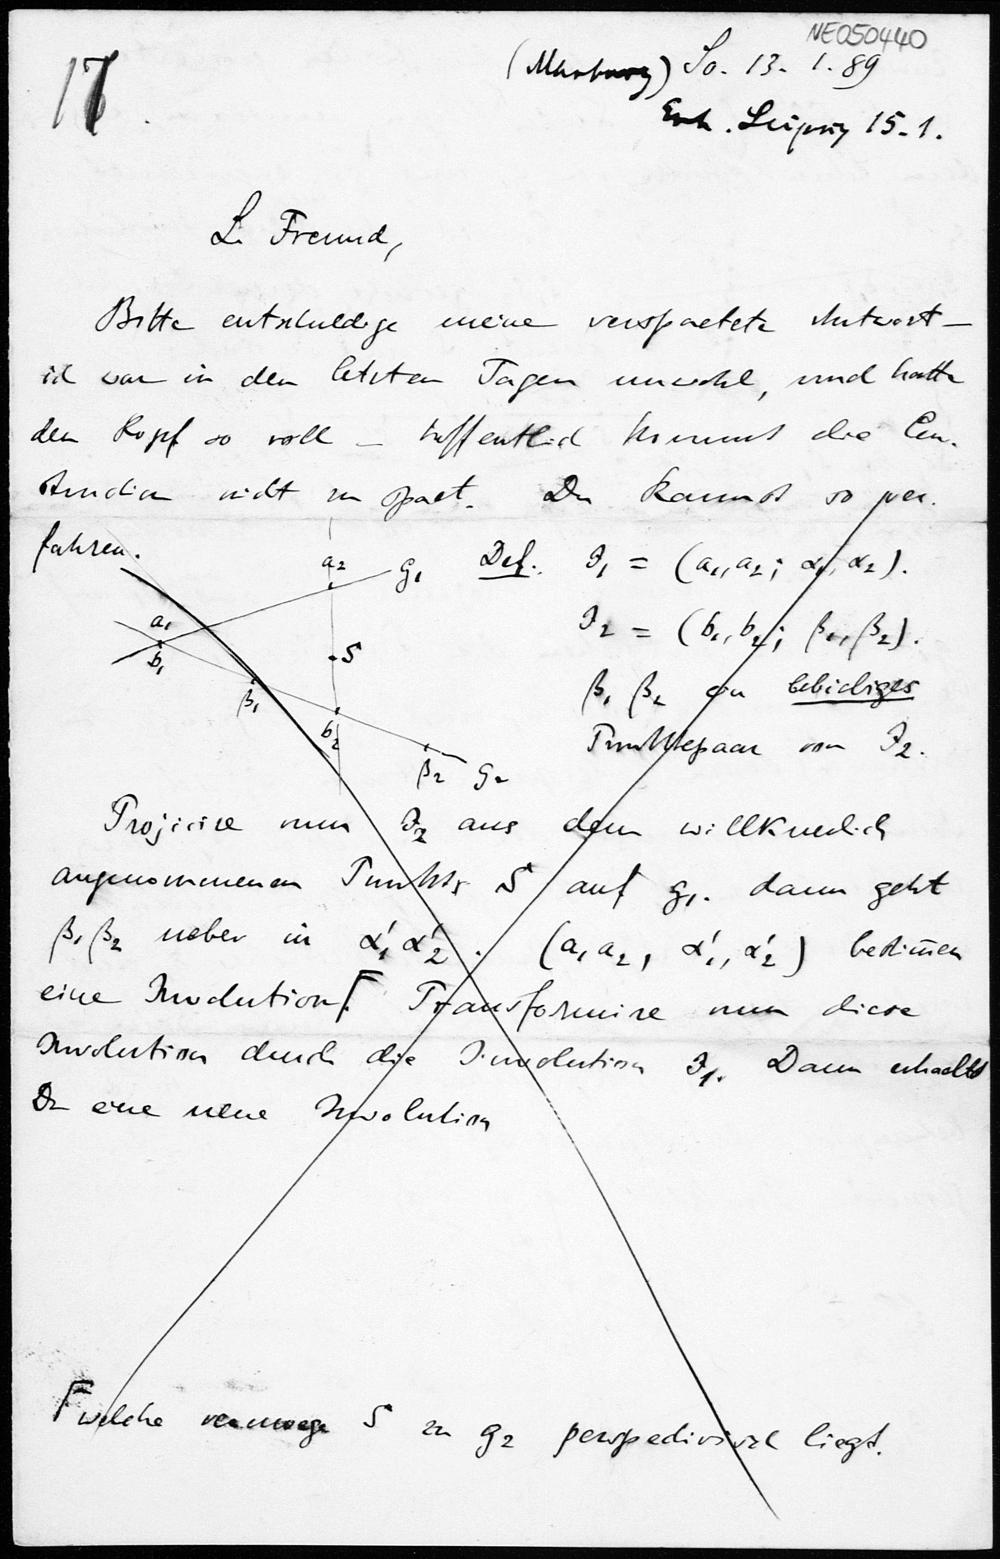 NE050440
17.
(Marburg) So. 13. 1. 89
Erh. Leipzig 15.1.
L. Freund,
Bitte entschuldige meine verspaetete Antwort –
ich war in den letzten Tagen unwohl, und hatte
den Kopf so voll – hoffentlich kommt die Con-
struction nicht zu spaet. Du kannst so ver-
fahren.
a2 g1 Def. J1 = (a1, a2; α1, α2).
a1 b1 S J2 = (b1, b2; β1, β2).
β1 b2 β1 β2 ein beliebiges
β2 g2 Punktepaar von J2.
Projicire nun J2 aus dem willkuerlich
angenommenen Punkte S auf g1. dann geht
β1 β2 ueber in α1' α2'. (a1 a2, α1', α2') bestim̅en
eine Involution Γ. Transformire nun diese
Involution durch die Involution J1. Dann erhaeltst
Du eine neue Involution
Γ welche vermoege S zu g2 perspectivisch liegt.